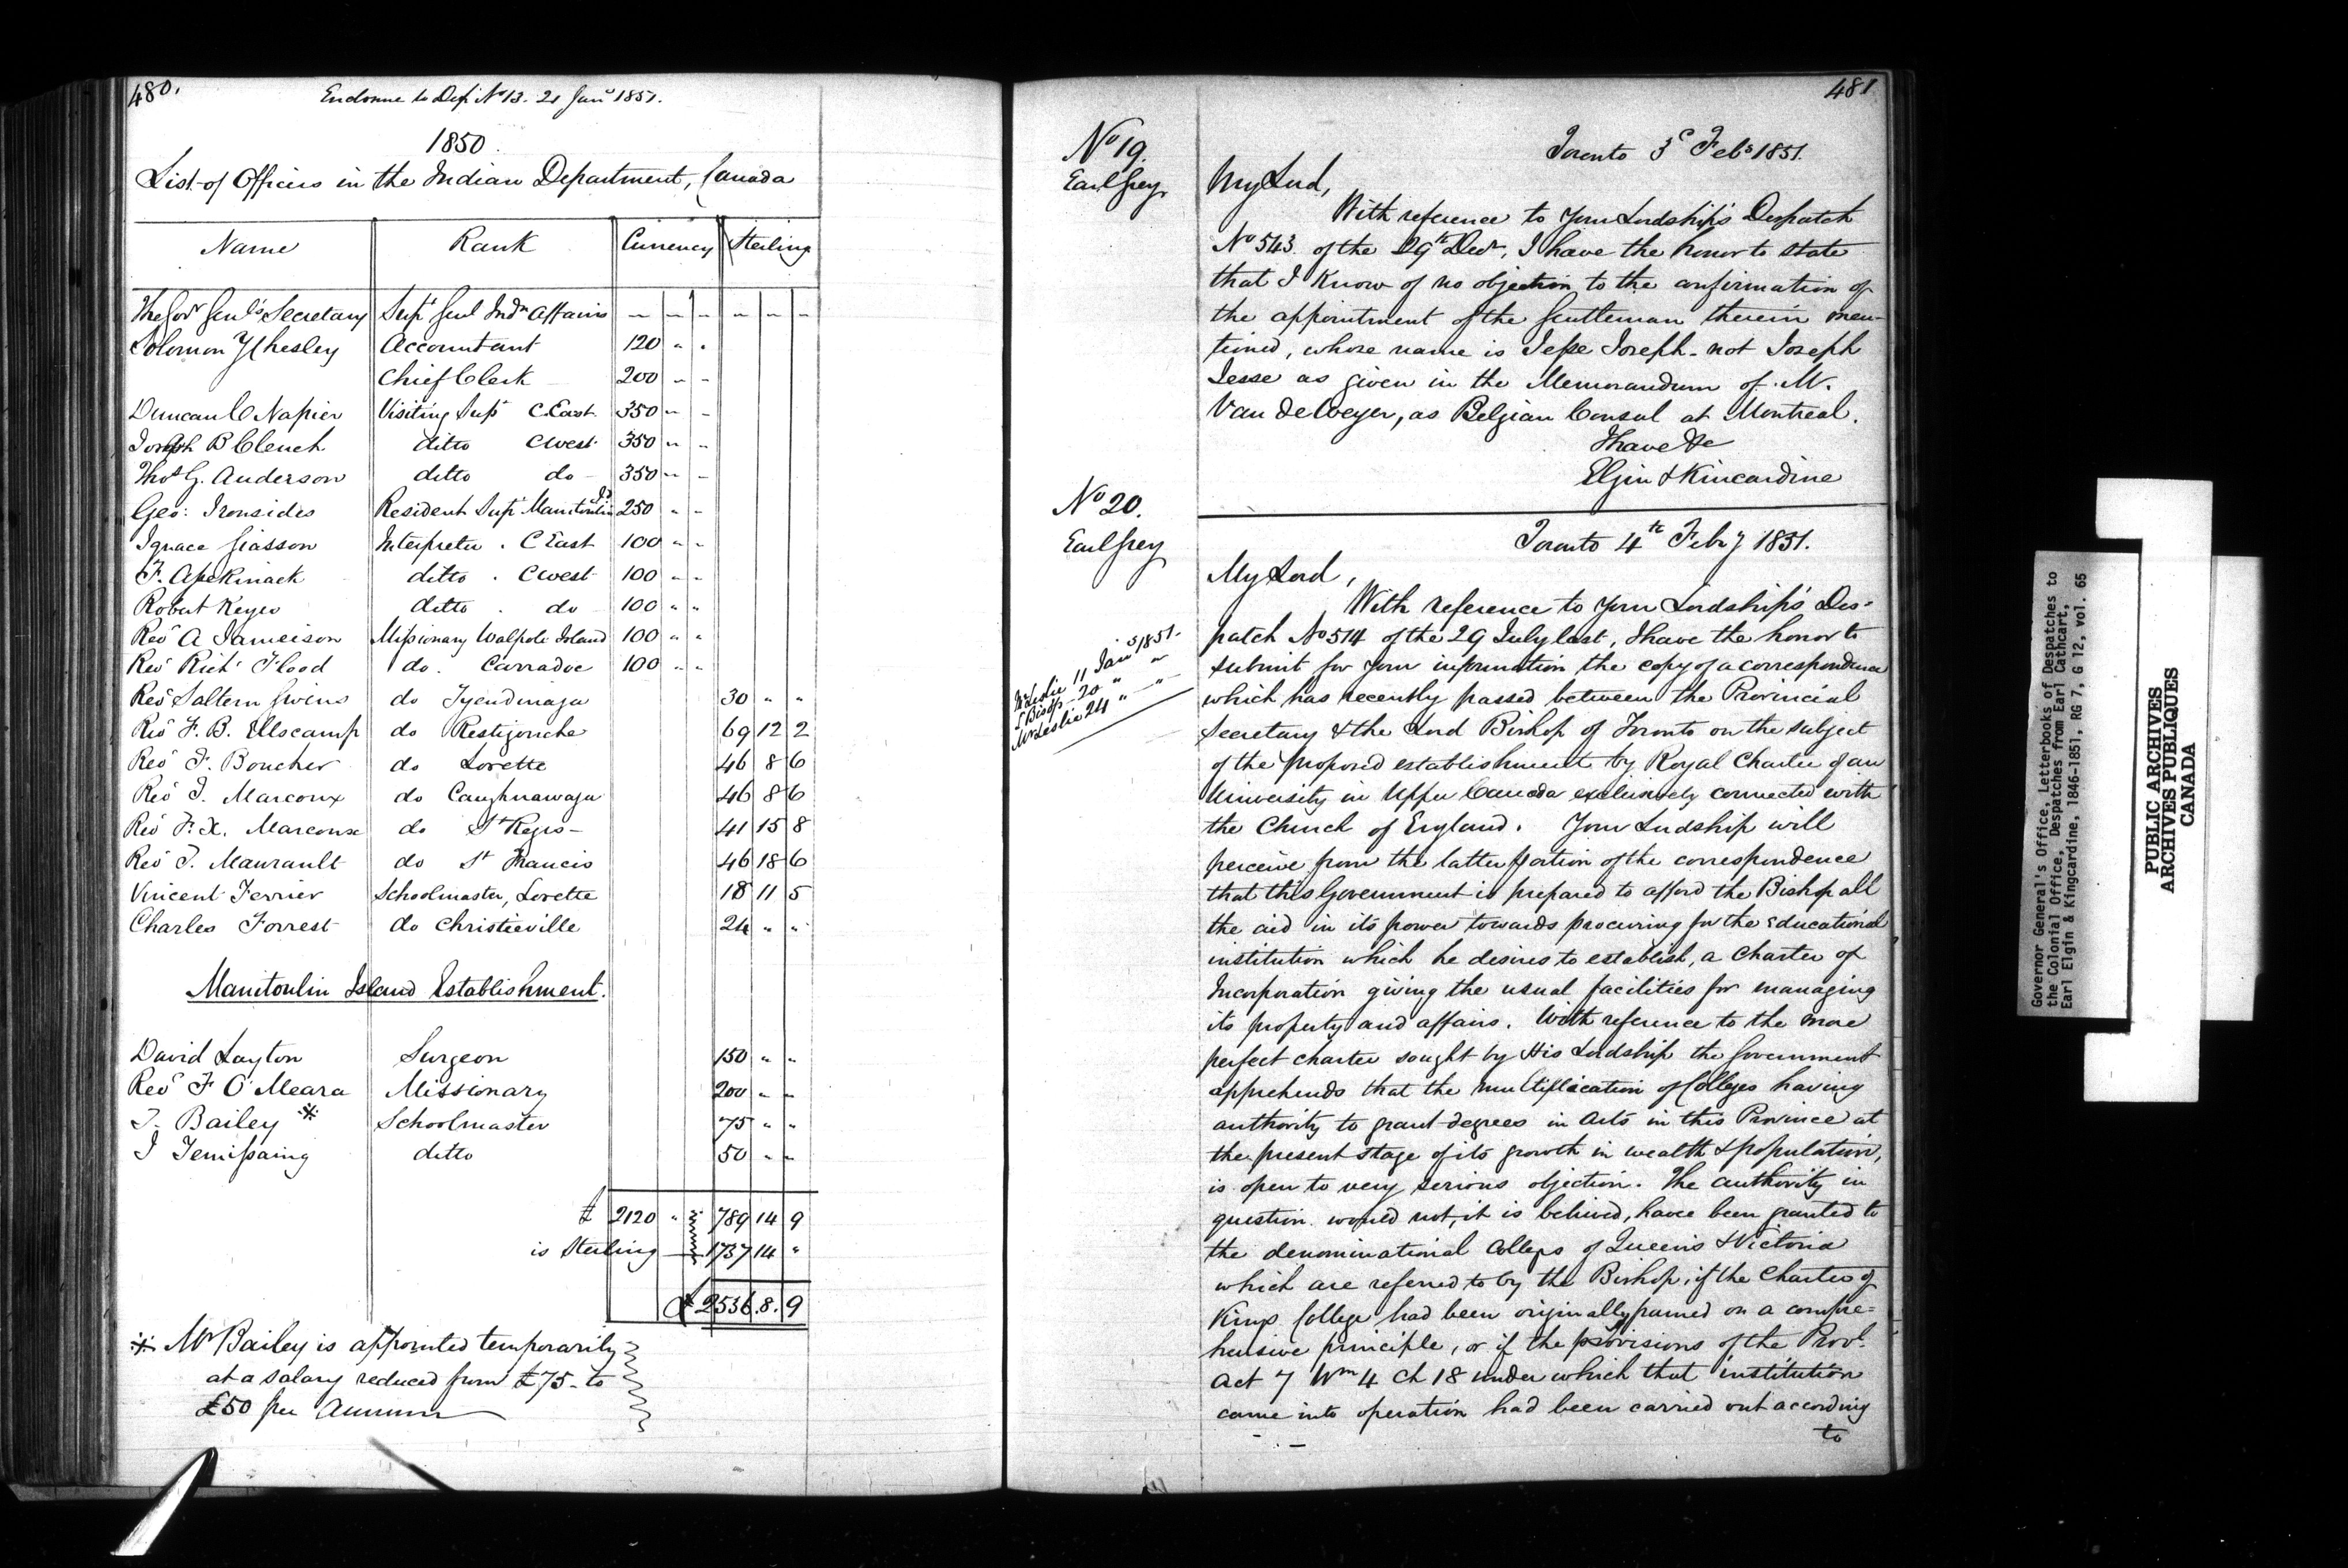 480.
Enclosure to Desp. No 13. 21 Jany 1851.
1850.
List of Officers in the Indian Department, Canada
Name Rank Currency Sterling
The Govr Genl's Secretary Supt Genl Indn Affairs – – – – – –
Solomon Y Chesley Accountant 120 " "
Chief Clerk 200 " "
Duncan C Napier Visiting Supt C East 350 " "
Joseph B Clench ditto C West 350 " "
Thos G. Anderson ditto do 350 " "
Geo: Ironsides Resident Supt Manitoulin Id 250 " "
Ignace Giasson Interpreter . C East 100 " "
F. Assekinack ditto . C West 100 " "
Robert Keyes ditto . do 100 " "
Revd A Jameison Missionary Walpole Island 100 " "
Revd Richd Flood do. Carradoc 100 " "
Revd Saltern Givins do Tyendinaga 30 " "
Revd F. B. Ellscamp do Restigouche 69 12 2
Revd F. Boucher do Lorette 46 8 6
Revd J. Marcoux do Caughnawaga 46 8 6
Revd F. X. Marcoux do St Regis – 41 15 8
Revd J. Maurault do St Francis 46 18 6
Vincent Ferrier Schoolmaster, Lorette 18 11 5
Charles Forrest do Christieville 24 " "
Manitoulin Island Establishment.
David Layton Surgeon 150 " "
Revd F O'Meara Missionary 200 " "
J. Bailey * Schoolmaster 75 " "
J Temissaing ditto 50 " "
£ 2120 " " 789 14 9
is Sterling 1737 14 "
£ 2536.8.9
* Mr Bailey is appointed temporarily
at a salary reduced from £75 – to
£50 per annum
481
No 19.
Earl Grey
Toronto 3d Feby 1851.
My Lord,
With reference to your Lordship's Despatch
No 543 of the 29th Decr, I have the honor to state
that I know of no objection to the confirmation of
the appointment of the Gentleman therein men-
tioned, whose name is Jesse Joseph – not Joseph
Jesse as given in the Memorandum of M.
Van de Weyer, as Belgian Consul at Montreal.
I have &c
Elgin & Kincardine
No 20.
Earl Grey
Toronto 4th Feby 1851.
My Lord,
With reference to your Lordship's Des-
patch No 514 of the 29 July last, I have the honor to
submit for your information the copy of a correspondence
Mr Leslie 11 Jany 1851.
Ld Bishp – 20 " "
Mr Leslie 24 " – "
which has recently passed between the Provincial
Secretary & the Lord Bishop of Toronto on the subject
of the proposed establishment by Royal Charter of an
University in Upper Canada exclusively connected with
the Church of England. Your Lordship will
perceive from the latter portion of the correspondence
that this Government is prepared to afford the Bishop all
the aid in its power towards procuring for the Educational
institution which he desires to establish, a Charter of
Incorporation giving the usual facilities for managing
its property and affairs. With reference to the more
perfect charter sought by His Lordship the Government
apprehends that the multiplication of Colleges having
authority to grant degrees in Arts in this Province at
the present stage of its growth in wealth & population,
is open to very serious objection. The authority in
question would not, it is believed, have been granted to
the denominational Colleges of Queen's & Victoria
which are referred to by the Bishop, if the Charter of
Kings College had been originally framed on a compre=
hensive principle, or if the provisions of the Provl
Act 7 Wm 4 Ch 18 under which that institution
came into operation had been carried out according
to
Governor General's Office, Letterbooks of Despatches to
the Colonial Office, Despatches from Earl Cathcart,
Earl Elgin & Kingcardine, 1846-1851, RG 7, G 12, vol. 65
PUBLIC ARCHIVES
ARCHIVES PUBLIQUES
CANADA